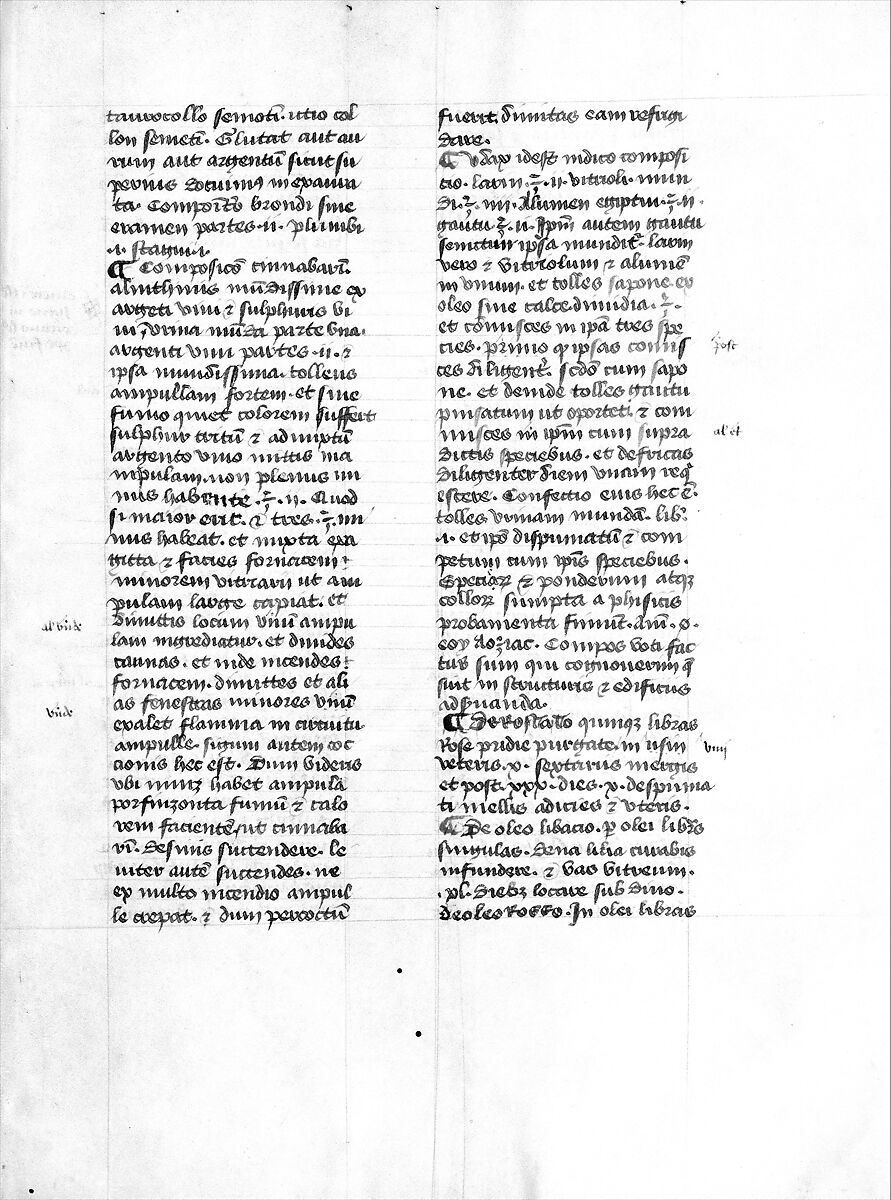 taurocollo semoti. ictio col
lon semeti. Glutat aut au
rum aut argentū sicut su
perius docuimꝰ in exaura
ta. Compoīto brondi sine
examen partes .ii. plumbi
.i. stagni .i.
¶ Composicō cinnabarī.
almithius mūdissime ex
argēti vivi ⁊ sulphuris vi
vi, vrina mūda parte vna.
argenti viui partes .ii. ⁊
ipsa mundissima. tollens
ampullam fortem. et sine
fumo q̄ niet colorem suffert
sulphur tritū ⁊ admixtū
argento vivo mittis in a
mpulam. non plenus mi
nus habente .℥. ii. Quod
si maior erit. ⁊ tres .℥. mi
nus habeat. et iuxta exa
gitta ⁊ facies fornacem
minorem vitrarii ut am
pulam large capiat. et
dimittis locum vnū ampu
lam ingrediatur. et dimides
caunas. et inde incendes
fornacem. dimittes et ali
as fenestras minores vnū
exalet flamma in circuitu
ampulle. signum autem coc
cionis hec est. Dum videris
vbi nunꝫ habet ampula
porfinzonta fumū ⁊ calo
rem facientē, ut cinnaba
rī. Desinis succendere. le
uiter autē succendes. ne
ex multo incendio ampul
le crepat. ⁊ dum percoctū
al vnde
vnde
fuerit, dimitas eam refrigi
dare.
¶ vdax idest indico composi
cio. larin .℥. ii. vitrioli. mun
di .℥. iiii. Alumen egiptiū .℥. ii.
gantu .℥. ii. Ipm̄ autem gantu
semitum ipsa mundit̄. larin
vero ⁊ vitriolum ⁊ alumē
in vnum. et tolles sapone ex
oleo sine calce. dimidia .℥.
et cōmisces in ipā tres spe
cies. primo q̄ ipsas comis
ces diligent̄. scdō cum sapo
ne. et deinde tolles gantu
pinsatum ut oportet. ⁊ com
misces in ipm̄ cum supra
dictis speciebus. et defricas
diligenter diem vnam req̄
escere. Confectio eius hec ē.
tolles vrinam mundā. lib̄.
.i. et ipō dispumatū ⁊ com
petum cum ipīs speciebus.
Speciaꝝ ⁊ ponderum atqꝫ
colloꝝ sumpta a phisicis
probamenta finiut.
Compos voti fac
tus sum qui cognouerim q̄
suit in structuris ⁊ edificiis
¶ De Rosato quinqꝫ libras
Rose pridie purgate. in usin
veteris .x. sextarius mergis
et post .xxx. dies .x. despuma
ti mellis adicies ⁊ vteris.
¶ De oleo libacio. ꝑ olei libras
singulas. dena lilia curabis
infundere. ⁊ vas vitreum.
.pl. diebꝫ locare sub diuo.
de oleo Roseo. In olei libras
post
al et
viiii